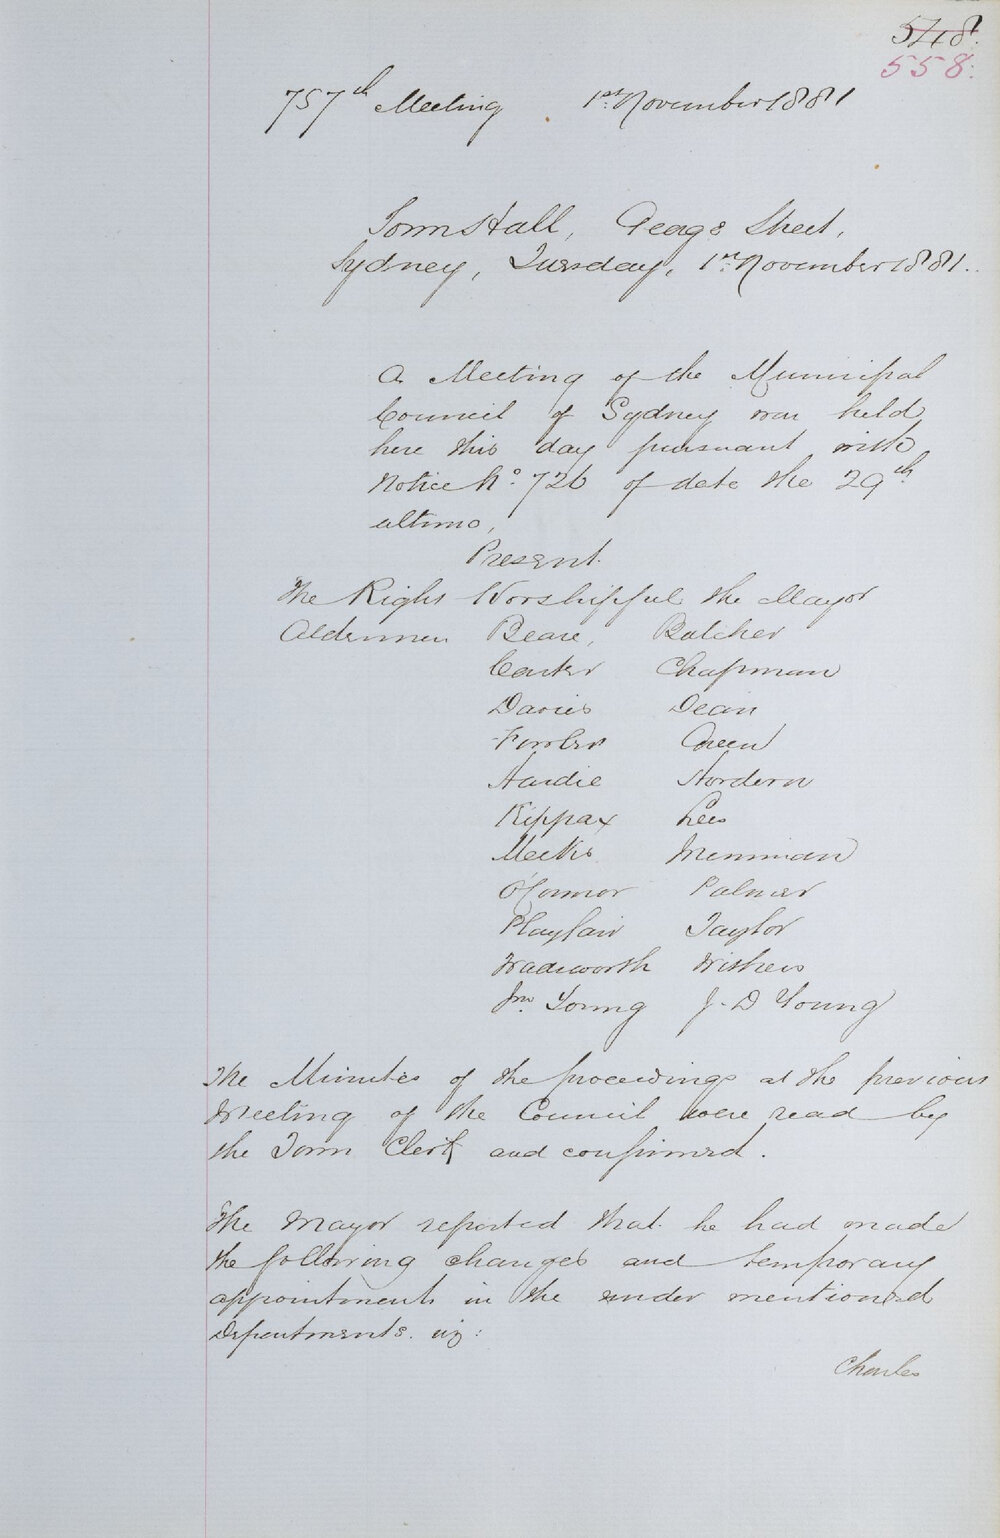 548.
558.
757th Meeting 1st November 1881
Town Hall, George Street,
Sydney, Tuesday, 1st November 1881.
A Meeting of the Municipal
Council of Sydney was held
here this day pursuant with
Notice No. 726 of date the 29th
ultimo,
Present.
The Right Worshipful the Mayor
Aldermen Beare, Butcher
Carter Chapman
Davies Dean
Fowler Green
Hardie Hordern
Kippax Lees
Meeks Merriman
O'Connor Palmer
Playfair Taylor
Wadsworth Withers
Jno. Young J. D Young
The Minutes of the proceedings at the previous
Meeting of the Council were read by
the Town Clerk and confirmed.
The Mayor reported that he had made
the following changes and temporary
appointments in the under mentioned
Departments. viz:
Charles